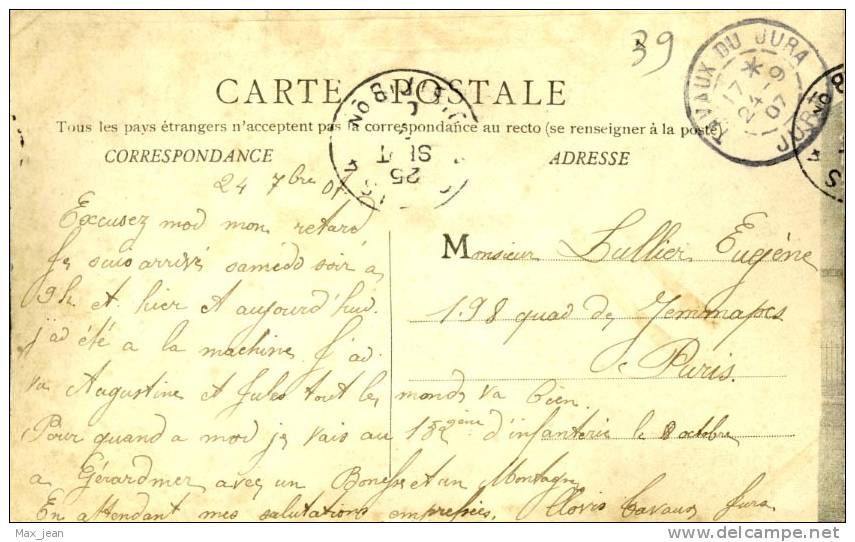 39
TAVAUX DU JURA
17 *
24 - 9
07
JURA
CARTE POSTALE
Tous les pays étrangers n'acceptent pas la correspondance au recto (se renseigner à la poste)
CORRESPONDANCE
ADRESSE
25
SEPT
24 7bre 07
Excusez moi mon retard
Je suis arrivé samedi soir à
9h et hier et aujourd'hui
j'ai été a la machine J'ai
vu Augustine et Jules tout le monde va bien
Pour quand a moi je vais au 152ième d'infanterie le 8 octobre
a Gérardmer avec un et un
En attendant mes salutations empressées. Clovis Tavaux Jura
Monsieur Lullier Eugéne
198 quai de Jemmapes
Paris.
Max_jean
www.delcampe.net